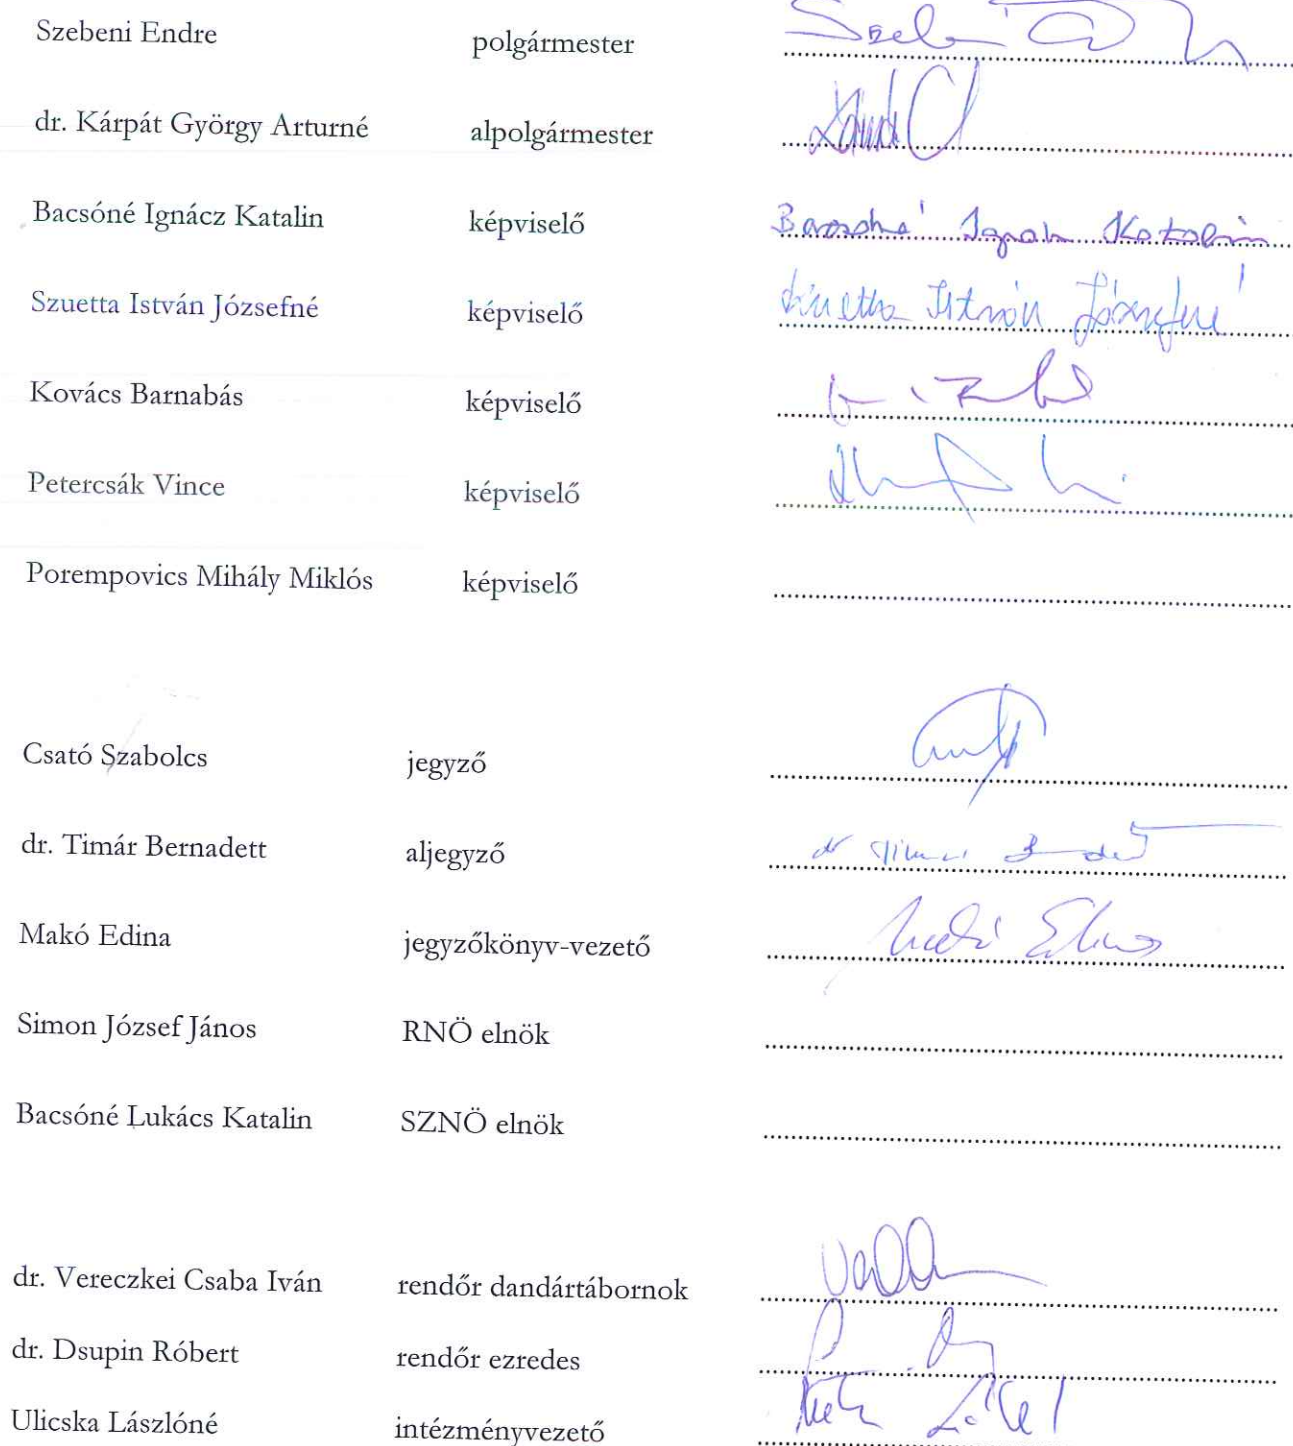 Szebeni Endre polgármester
dr. Kárpát György Arturné alpolgármester
Bacsóné Ignácz Katalin képviselő Bacsóné Ignácz Katalin
Szuetta István Józsefné képviselő Szuetta István Józsefné
Kovács Barnabás képviselő
Petercsák Vince képviselő
Porempovics Mihály Miklós képviselő
Csató Szabolcs jegyző
dr. Timár Bernadett aljegyző dr Timár
Makó Edina jegyzőkönyv-vezető Makó Edina
Simon József János RNÖ elnök
Bacsóné Lukács Katalin SZNÖ elnök
dr. Vereczkei Csaba Iván rendőr dandártábornok
dr. Dsupin Róbert rendőr ezredes
Ulicska Lászlóné intézményvezető